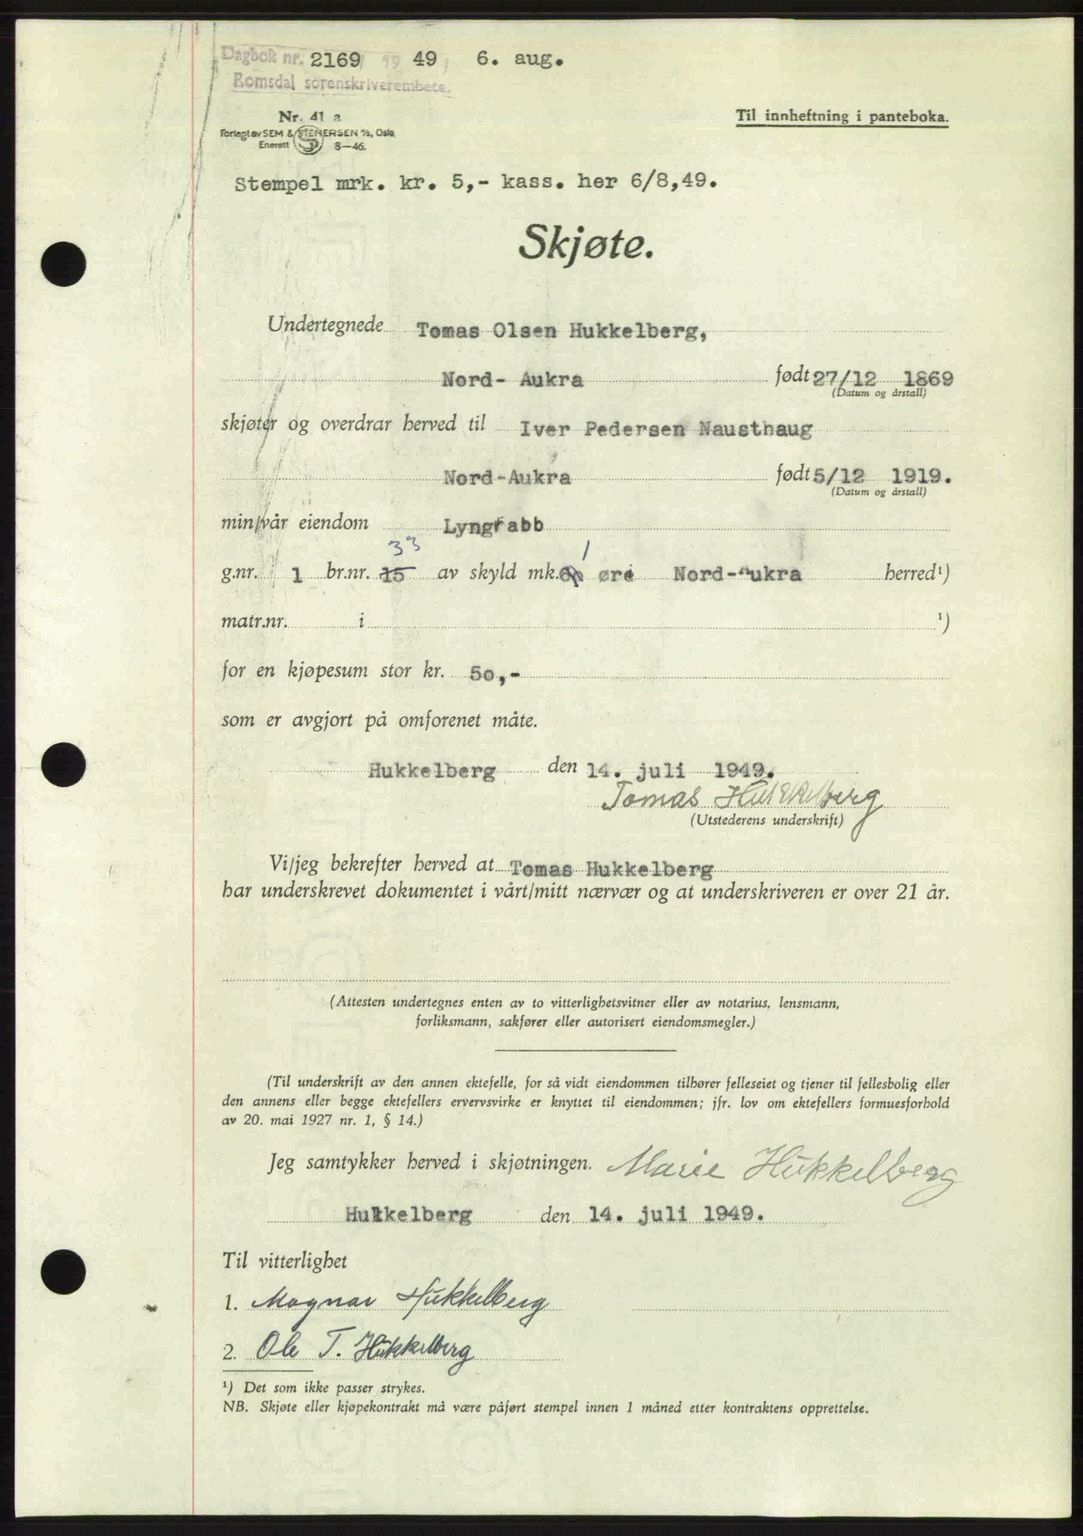 Dagbok nr. 2169 1949 6. aug.
Romsdal sorenskriverembete.
Nr. 41 a
Til innheftning i panteboka.
Forlegt av SEM & STENERSEN A/S, Oslo
Enerett 8—46.
Stempel mrk. kr. 5,- kass. her 6/8,49.
Skjøte.
Undertegnede Tomas Olsen Hukkelberg,
Nord- Aukra født 27/12 1869
(Datum og årstall)
skjøter og overdrar herved til Iver Pedersen Nausthaug
Nord-Aukra født 5/12 1919.
(Datum og årstall)
min/vår eiendom Lyngrabb
33 1
g.nr. 1 br.nr. 15 av skyld mk. øre Nord-Aukra herred¹)
matr.nr. i ¹)
for en kjøpesum stor kr. 50,-
som er avgjort på omforenet måte.
Hukkelberg den 14. juli 1949.
Tomas Hukkelberg
(Utstederens underskrift)
Vi/jeg bekrefter herved at Tomas Hukkelberg
har underskrevet dokumentet i vårt/mitt nærvær og at underskriveren er over 21 år.
(Attesten undertegnes enten av to vitterlighetsvitner eller av notarius, lensmann,
forliksmann, sakfører eller autorisert eiendomsmegler.)
(Til underskrift av den annen ektefelle, for så vidt eiendommen tilhører felleseiet og tjener til fellesbolig eller
den annens eller begge ektefellers ervervsvirke er knyttet til eiendommen; jfr. lov om ektefellers formuesforhold
av 20. mai 1927 nr. 1, § 14.)
Jeg samtykker herved i skjøtningen. Marie Hukkelberg
Hukkelberg den 14. juli 1949.
Til vitterlighet
1. Magnar Hukkelberg
2. Ole T. Hukkelberg
¹) Det som ikke passer strykes.
NB. Skjøte eller kjøpekontrakt må være påført stempel innen 1 måned etter kontraktens opprettelse.